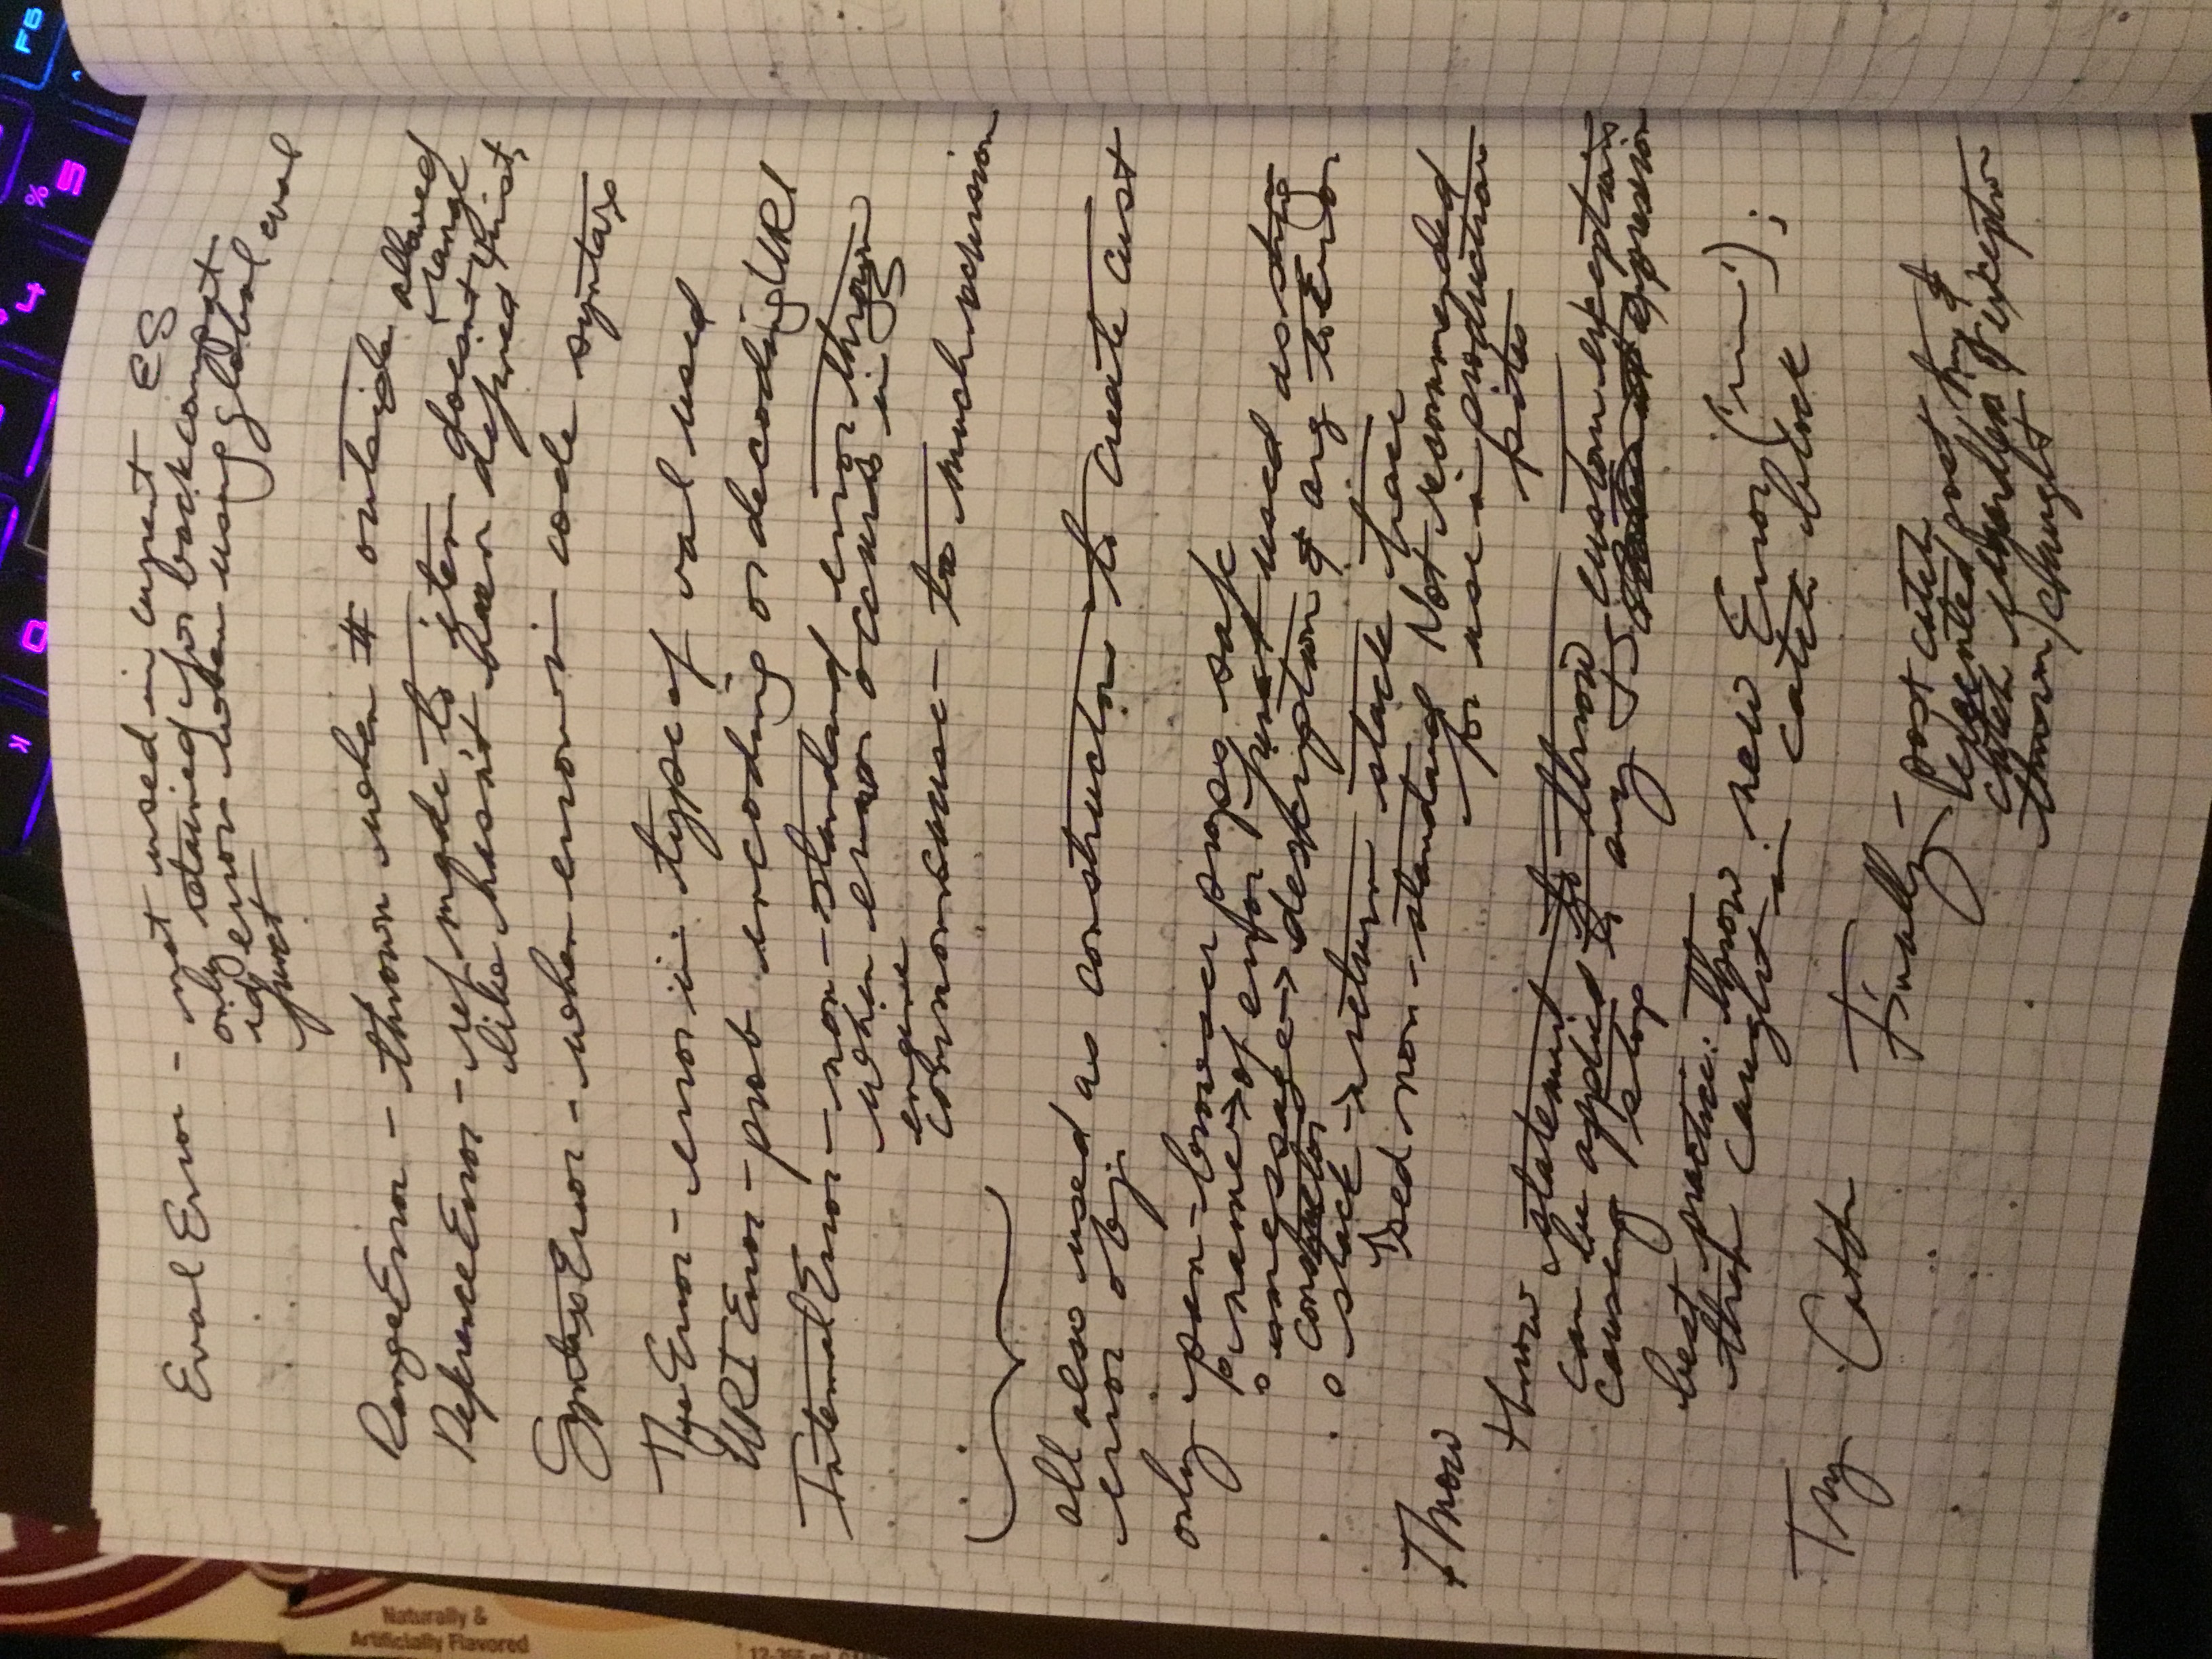 EvalError - not used in current ES
only retained for backcompat
id error when using global eval
funct
RangeError - thrown when # outside allowed
range
ReferenceError - ref made to item doesn't exist,
like hasn't been defined
SyntaxError - when error in code syntax
TypeError - error in type of val used
URIError - prob encoding or decoding URI
InternalError - non-standard error thrown
when error occurs in JS
engine
common cause - to much recursion
all also used as constructors to create cust
error obj
only pan-browser props safe
name → of error funct used as
message → description & arg to Error
constructor
stack → return stack trace
used non-standard Not recommended
for use in production
sites
Throw
throw statement to throw custom exceptions
can be applied to any JS expression
causing stop
best practice: throw new Error (' ');
then caught in catch block
Try Catch Finally - post catch
executed post try &
catch regardless if exception
thrown/caught
Naturally &
Artificially Flavored
4
%
5
F6